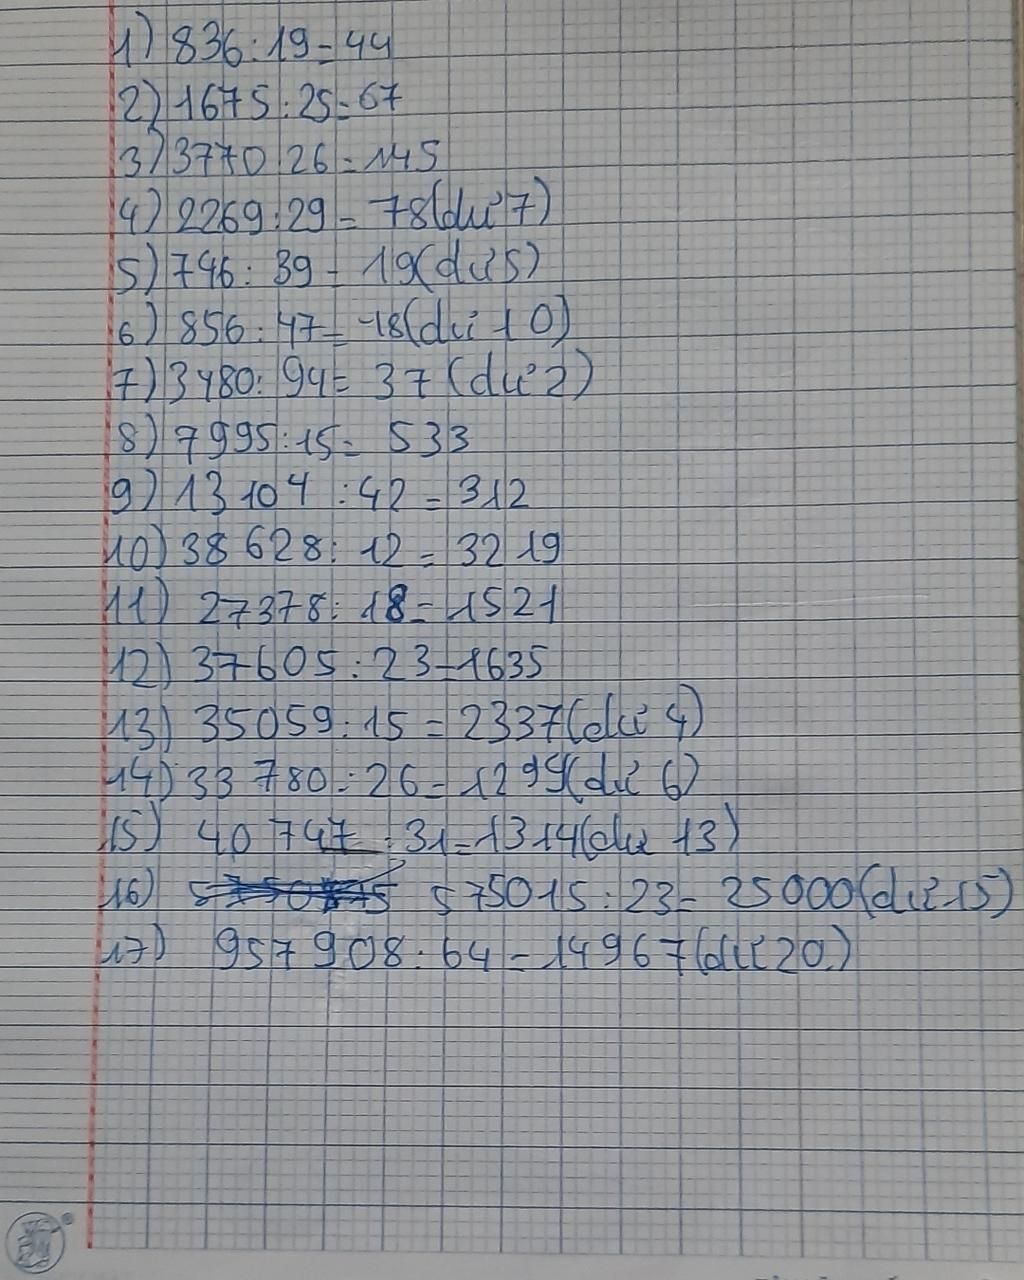 1) 836:19=44
2) 1675:25=67
3) 3770 26=145
4) 2269:29=78(dư 7)
5) 746:39=19(dư 5)
6) 856:47=18(dư 10)
7) 3480:94=37(dư 2)
8) 7995:15=533
9) 13104:42=312
10) 38628:12=3219
11) 27378:18=1521
12) 37605:23=1635
13) 35059:15=2337(dư 4)
14) 33780:26=1299(dư 6)
15) 40747:31=1314(dư 13)
16) 575015:23=25000(dư 15)
17) 957908:64=14967(dư 20)